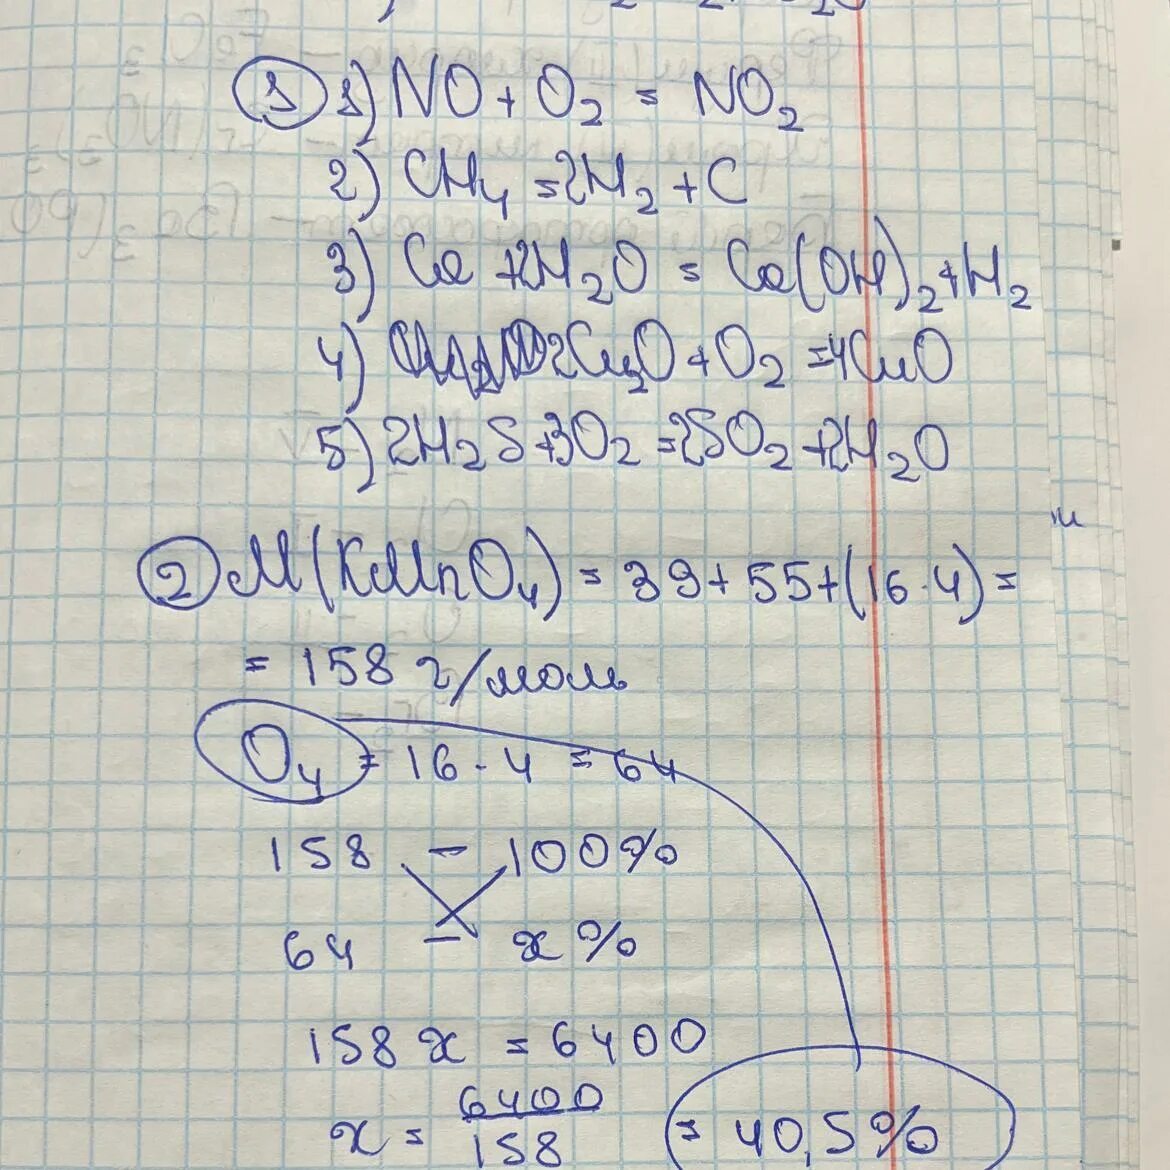 ① 1) NO + O₂ = NO₂
2) CH₄ = 2H₂ + C
3) Ca + 2H₂O = Ca(OH)₂ + H₂
4) 2Cu₂O + O₂ = 4CuO
5) 2H₂S + 3O₂ = 2SO₂ + 2H₂O
② M(KMnO₄) = 39 + 55 + (16 · 4) =
= 158 г/моль
O₄ = 16 · 4 = 64
158 – 100%
64 – x%
158 x = 6400
x = 6400/158 = 40,5%